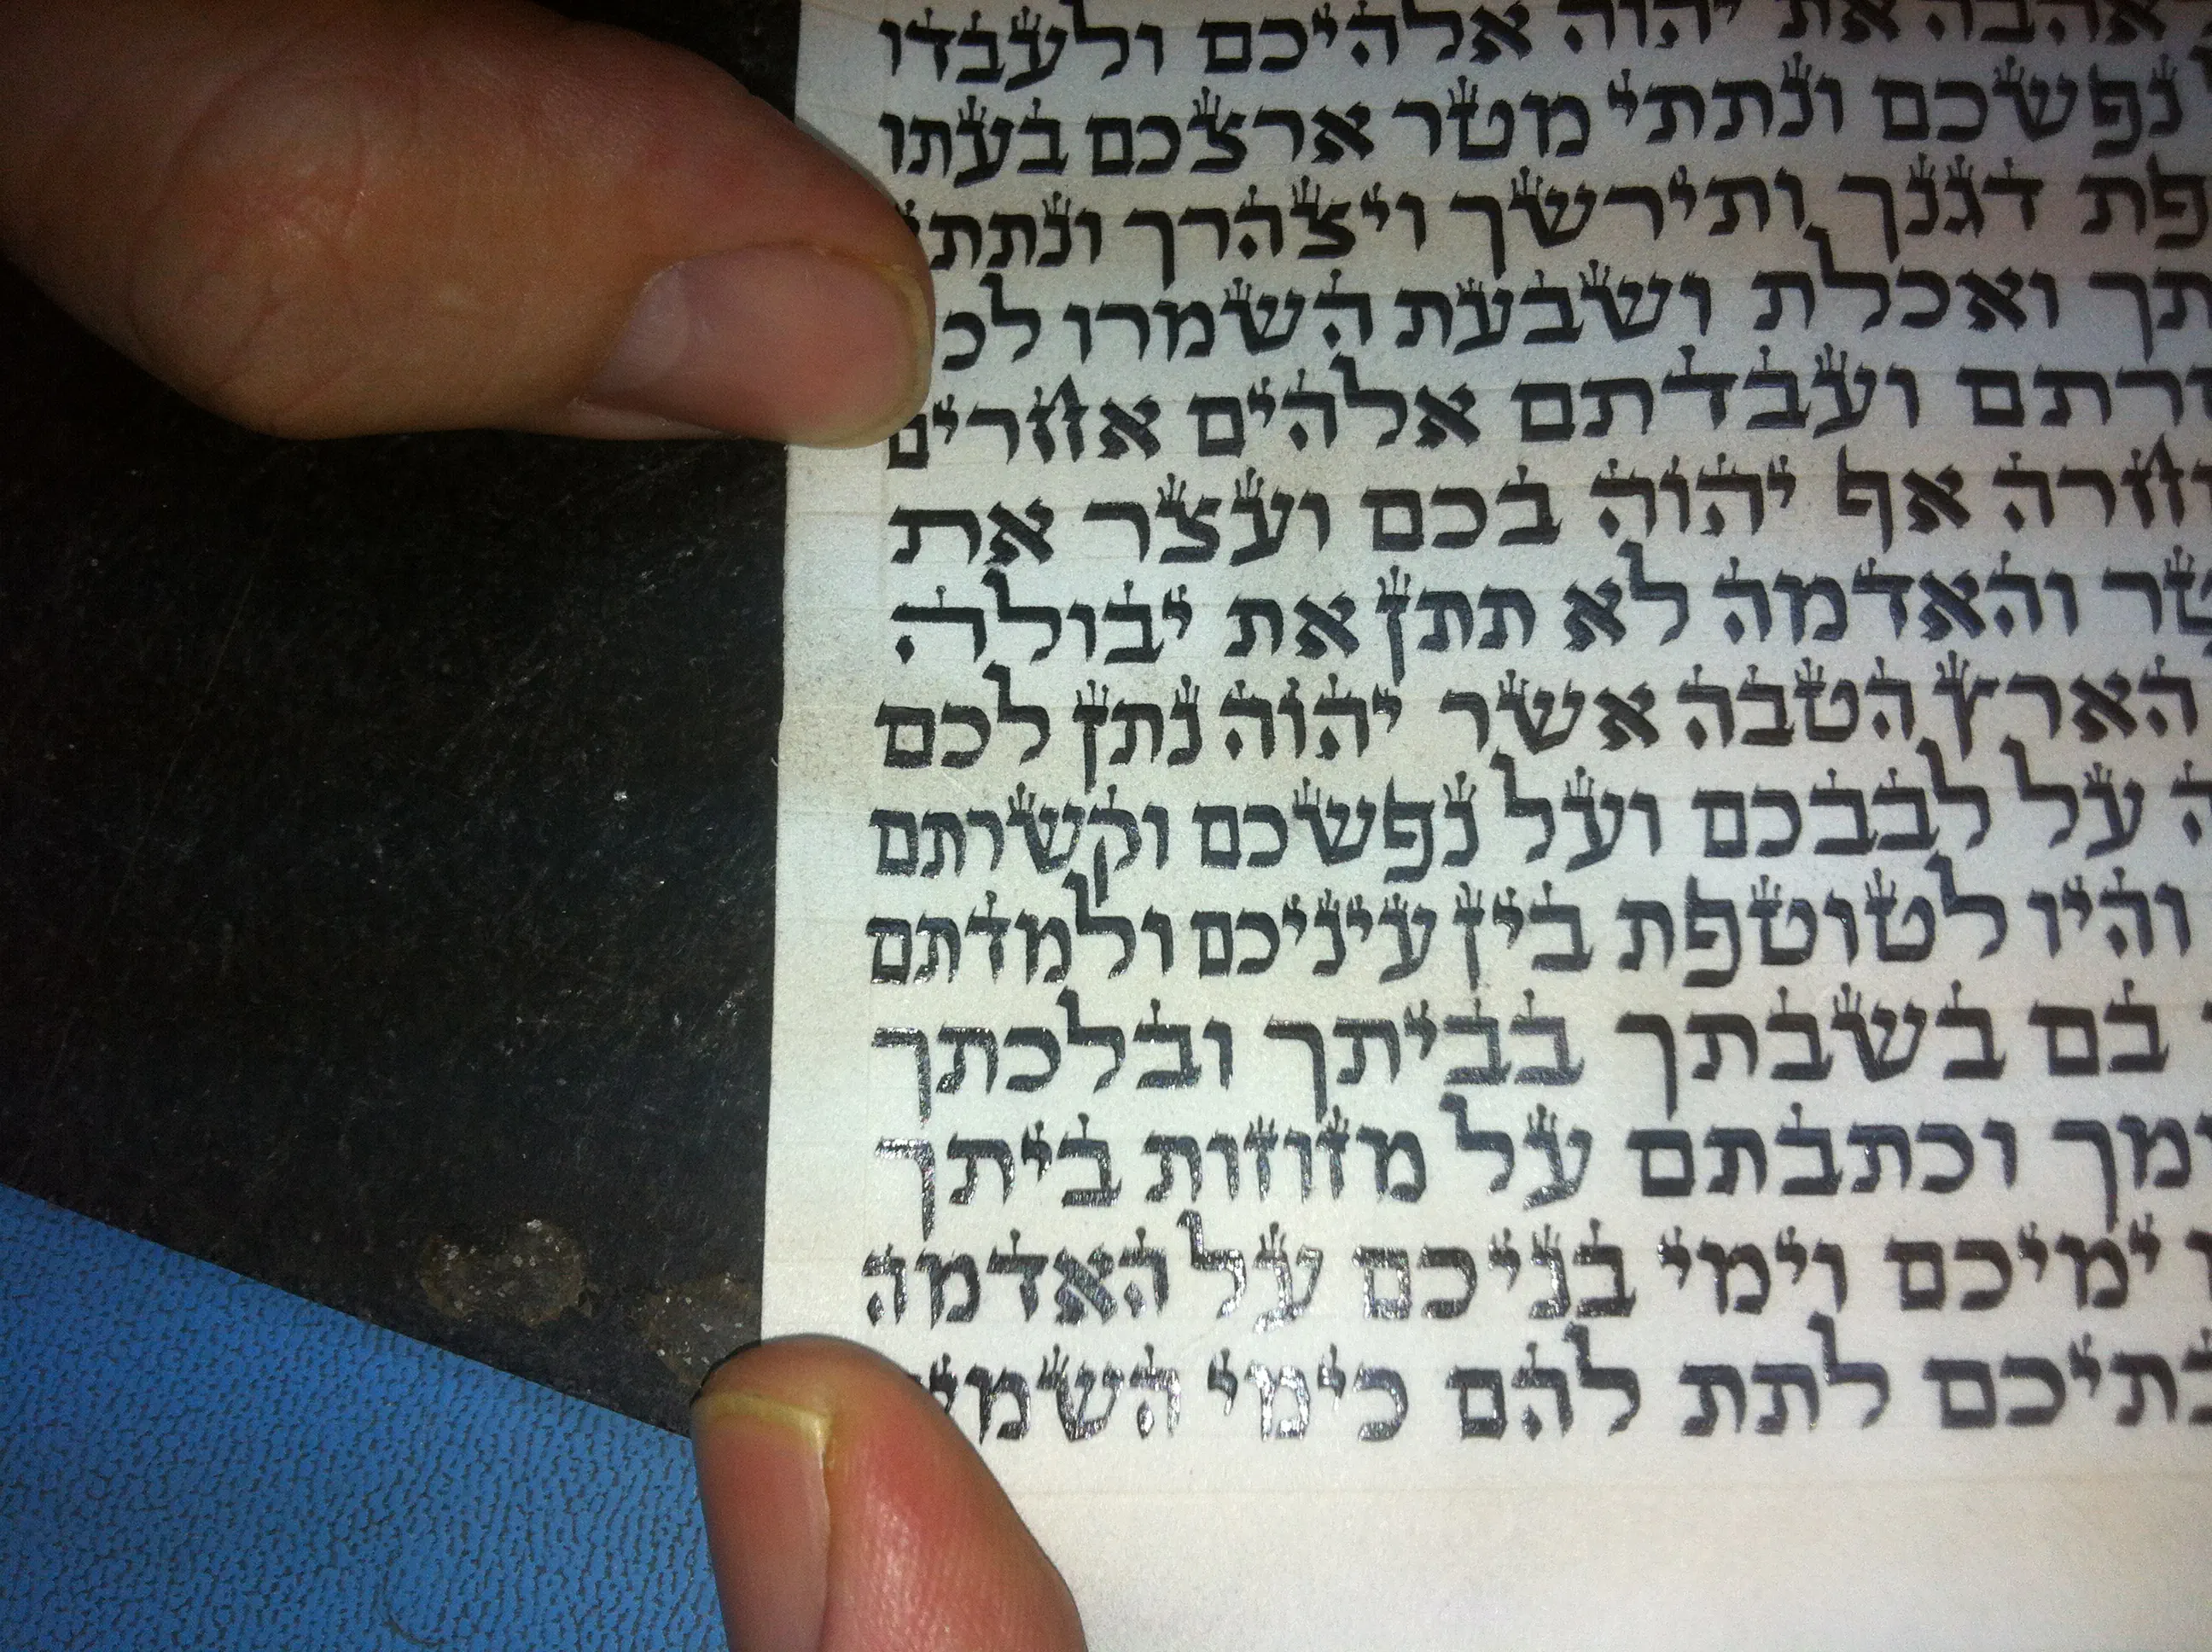 אהבה את יהוה אלהיכם ולעבדו
נפשכם ונתתי מטר ארצכם בעתו
פת דגנך ותירשך ויצהרך ונתתי
תך ואכלת ושבעת השמרו לכ
רתם ועבדתם אלהים אחרים
וחרה אף יהוה בכם ועצר את
טר והאדמה לא תתן את יבולה
הארץ הטבה אשר יהוה נתן לכם
ה על לבבכם ועל נפשכם וקשרתם
והיו לטוטפת בין עיניכם ולמדתם
בם בשבתך בביתך ובלכתך
מך וכתבתם על מזוזות ביתך
ימיכם וימי בניכם על האדמה
תיכם לתת להם כימי השמי